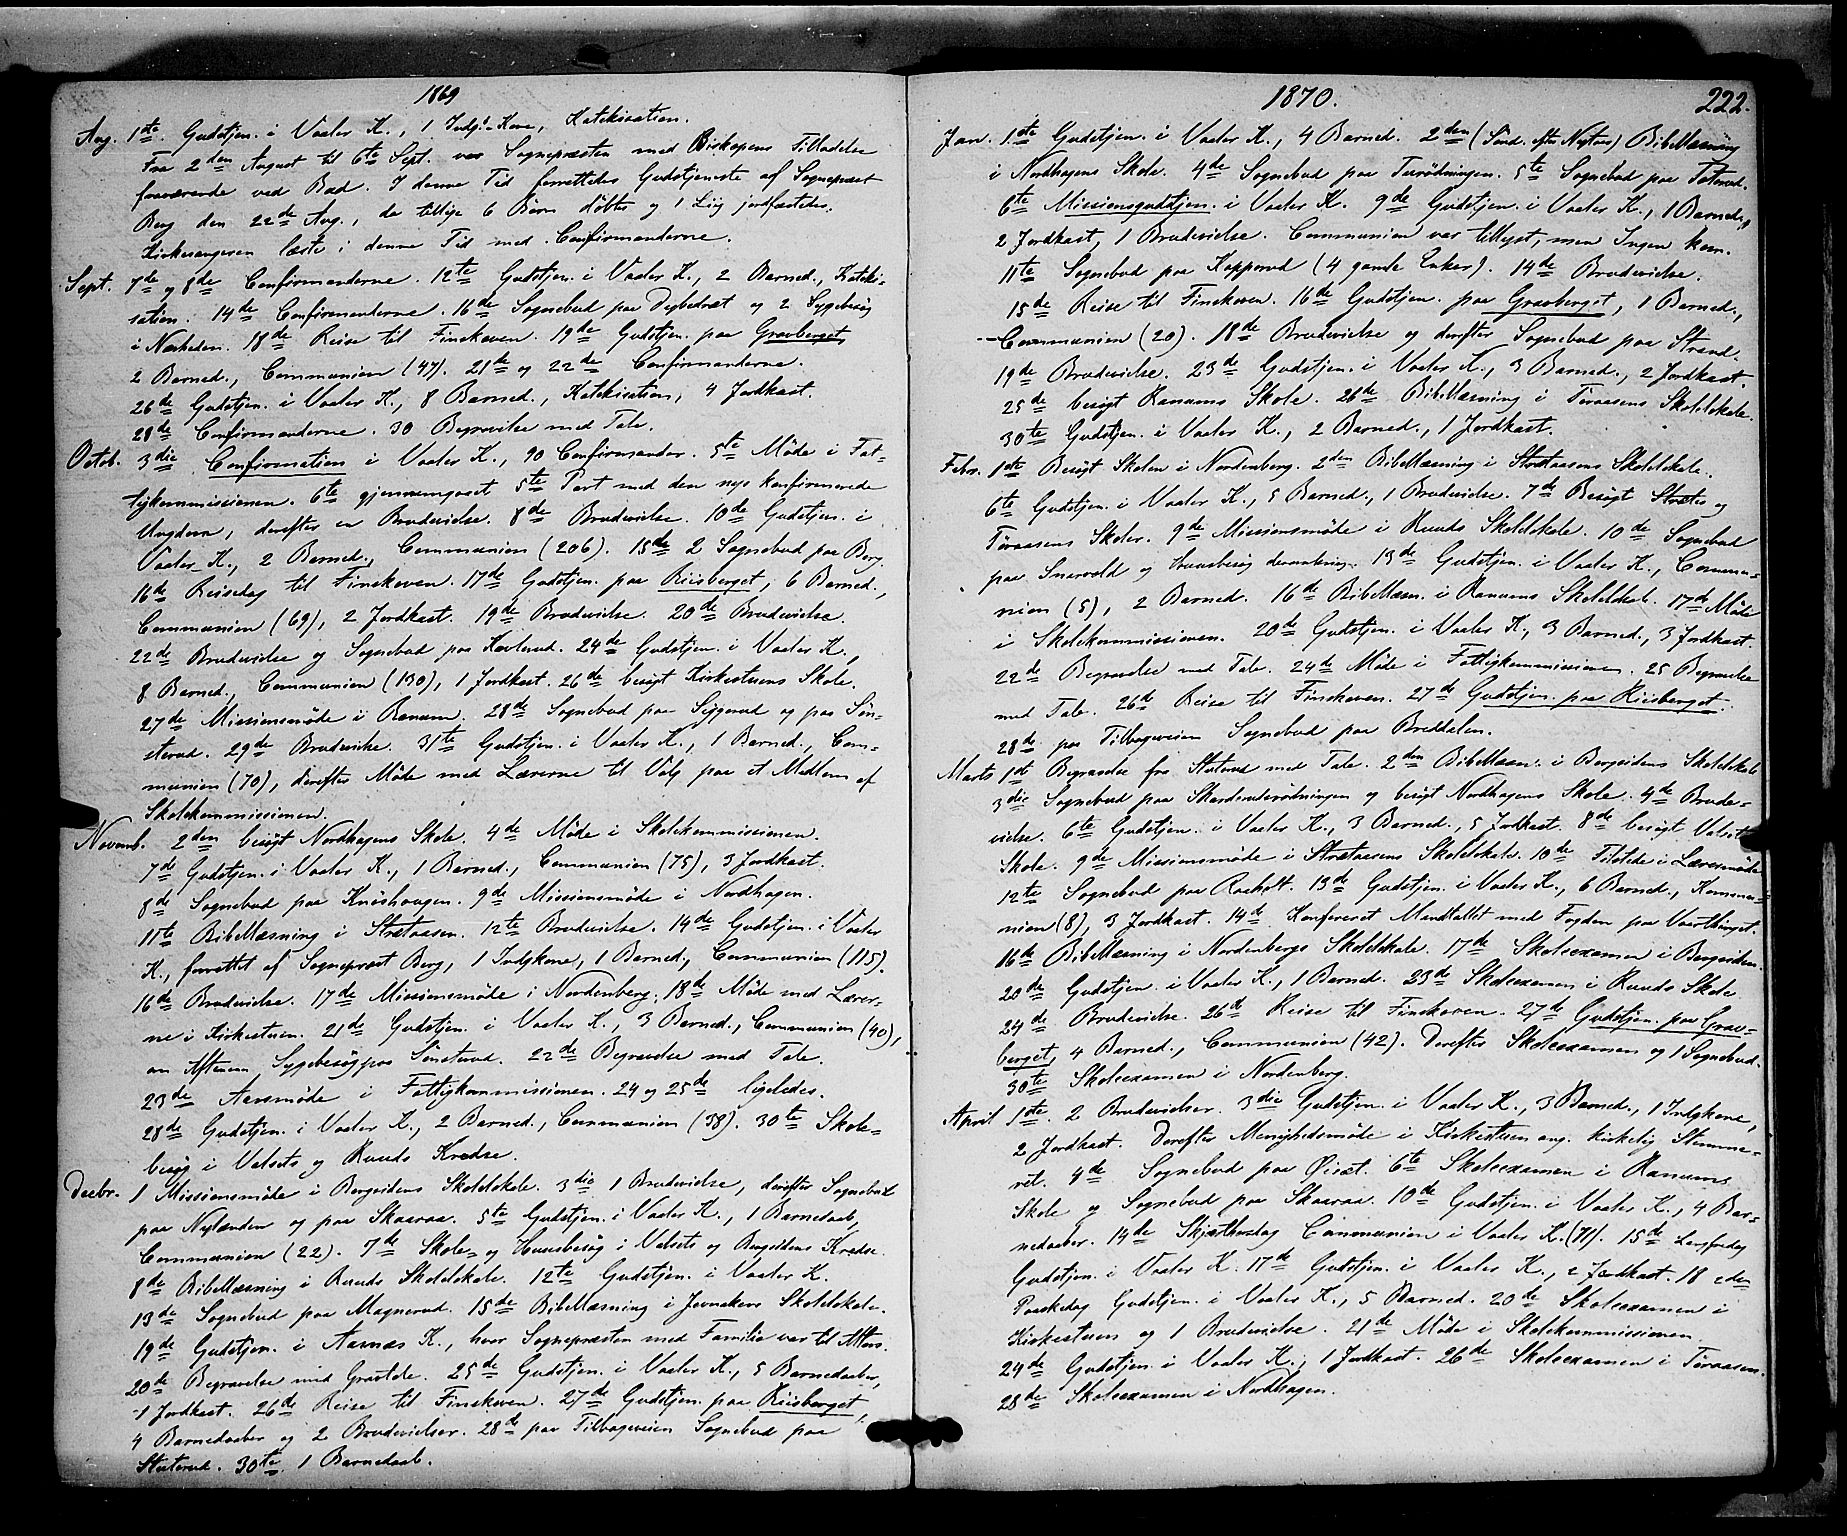 1869
Aug. 1ste Gudstjen. i Vaaler K., 1 Indg.-Kone, Katekisation.
Fra 2den August til 6te Sept. var Sognepræsten med Biskopens Tilladelse
fraværende ved Bad. I denne Tid forrettedes Gudstjeneste af Sognepræst
Berg den 22de Aug., da tillige 6 Børn døbtes og 1 Liig jordfæstedes.
Kirkesangeren læste i denne Tid med Confirmanderne.
Sept. 7de og 8de Confirmanderne. 12te Gudstjen. i Vaaler K., 2 Barned., Kateki-
sation. 14de Confirmanderne. 16de Sognebud paa Dybedræt og 2 Sygebesøg
i Nærheden. 18de Reise til Finskoven. 19de Gudstjen. paa Gravberget,
2 Barned., Communion (47). 21de og 22de Confirmanderne.
26de Gudstjen. i Vaaler K., 8 Barned., Katekisation, 4 Jordkast.
28de Confirmanderne. 30 Begravelse med Tale.
Octob. 3die Confirmation i Vaaler K., 90 Confirmander. 5te Møde i Fat-
tigkommissionen. 6te gjennemgaaet 5te Part med den nys konfirmerede
Ungdom, derefter en Brudevielse. 8de Brudevielse. 10de Gudstjen. i
Vaaler K., 2 Barned., Communion (206). 15de 2 Sognebud paa Berg.
16de Reisedag til Finskoven. 17de Gudstjen. paa Riisberget, 6 Barned.,
Communion (69), 2 Jordkast. 19de Brudevielse. 20de Brudevielse.
22de Brudevielse og Sognebud paa Haverud. 24de Gudstjen. i Vaaler K.,
8 Barned., Communion (130), 1 Jordkast. 26de besøgt Kirkestuens Skole.
27de Missionsmøde i Ranum. 28de Sognebud paa Siggerud og paa Søn-
sterud. 29de Brudevielse. 31te Gudstjen. i Vaaler K., 1 Barned., Com-
munion (70), derefter Møde med Lærerne til Valg paa et Medlem af
Skolekommissionen.
Novemb. 2den besøgt Nordhagens Skole. 4de Møde i Skolekommissionen.
7de Gudstjen. i Vaaler K., 1 Barned., Communion (75), 3 Jordkast.
8de Sognebud paa Knashaugen. 9de Missionsmøde i Nordhagen.
11te Bibellæsning i Strætaasen. 12te Brudevielse. 14de Gudstjen. i Vaaler
K., forrettet af Sognepræst Berg, 1 Indgkone, 1 Barned., Communion (115).
16de Brudevielse. 17de Missionsmøde i Nordenberg. 18de Møde med Lærer-
ne i Kirkestuen. 21de Gudstjen. i Vaaler K., 3 Barned., Communion (40),
om Aftenen Sygebesøg paa Sønsterud. 22de Begravelse med Tale.
23de Aarsmøde i Fattigkommissionen. 24 og 25de ligeledes.
28de Gudstjen. i Vaaler K., 2 Barned., Communion (38). 30te Skole-
besøg i Valsets og Ruuds Kredse.
Decbr. 1 Missionsmøde i Bergsidens Skolelokale. 3die 1 Brudevielse, derefter Sognebud
paa Nylænden og paa Skaaraa. 5te Gudstjen. i Vaaler K., 1 Barnedaab,
Communion (22). 7de Skole- og Huusbesøg i Valsets og Bergsidens Kredse.
8de Bibellæsning i Ruuds Skolelokale. 12te Gudstjen. i Vaaler K.
13de Sognebud paa Magnerud. 15de Bibellæsning i Jernakers Skolelokale.
19de Gudstjen. i Aasnæs K., hvor Sognepræsten med Familie var til Alters.
20de Begravelse med Gravtale. 25de Gudstjen. i Vaaler K., 5 Barnedaaber,
1 Jordkast. 26de Reise til Finskoven. 27de Gudstjen. paa Riisberget,
4 Barnedaaber og 2 Brudevielser. 28de paa Tilbageveien Sognebud paa
Ststerud. 30te 1 Barnedaab.
1870.
222.
Jan. 1ste Gudstjen. i Vaaler K., 4 Barned. 2den (Sønd. efter Nytaar) Bibellæsning
i Nordhagens Skole. 4de Sognebud paa Tuerødningen. 5te Sognebud paa Toterud.
6te Missionsgudstjen. i Vaaler K. 9de Gudstjen. i Vaaler K., 1 Barned.,
2 Jordkast, 1 Brudevielse. Communion var tillyst, men Ingen kom.
11te Sognebud paa Kopperud (4 gamle Enker). 14de Brudevielse.
15de Reise til Finskoven. 16de Gudstjen. paa Gravberget, 1 Barned.,
Communion (20). 18de Brudevielse og derefter Sognebud paa Strand.
19de Brudevielse. 23de Gudstjen. i Vaaler K., 3 Barned., 2 Jordkast.
25de besøgt Ranums Skole. 26de Bibellæsning i Toraasens Skolelokale.
30te Gudstjen. i Vaaler K., 2 Barned., 1 Jordkast.
Febr. 1ste Besøgt Skolen i Nordenberg. 2den Bibellæsning i Strætaasens Skolelokale.
6te Gudstjen. i Vaaler K., 5 Barned., 1 Brudevielse. 7de Besøgt Strætes og
Toraasens Skoler. 9de Missionsmøde i Ruuds Skolelokale. 10de Sognebud
paa Snarvold og Huusbesøg deromkring. 13de Gudstjen. i Vaaler K., Commu-
nion (5), 2 Barned. 16de Bibellæsn. i Ranums Skolelokale. 17de Møde
i Skolekommissionen. 20de Gudstjen. i Vaaler K., 3 Barned., 3 Jordkast.
22de Begravelse med Tale. 24de Møde i Fattigkommissionen. 25 Begravelse
med Tale. 26de Reise til Finskoven. 27de Gudstjen. paa Riisberget.
28de paa Tilbageveien Sognebud paa Breddalen.
Marts 1st Begravelse fraStsterud med Tale. 2den Bibellæsn. i Bergsidens Skolelokale
3die Sognebud paa Skarderudsrødningen og besøgt Nordhagens Skole. 4de Brude-
vielse. 6te Gudstjen. i Vaaler K., 3 Barned., 5 Jordkast. 8de besøgt Valsets
Skole. 9de Missionsmøde i Strætaasens Skolelokale. 10de Tilstede i Lærermøde
12te Sognebud paa Raaholt. 13de Gudstjen. i Vaaler K., 6 Barned., Kommu-
nion (8), 3 Jordkast. 14de Konfereret Mandtallet med Fogden paa Vaarthinget.
16te Bibellæsning i Nordenbergs Skolelokale. 17de Skoleexamen i Bergsiden.
20de Gudstjen. i Vaaler K., 1 Barned. 23de Skoleexamen i Ruuds Skole.
24de Brudevielse. 26de Reise til Finskoven. 27de Gudstjen. paa Grav-
berget, 4 Barned., Communion (42). Derefter Skoleexamen og 1 Sognebud.
30te Skoleexamen i Nordenberg.
April 1ste. 2 Brudevielser. 3die Gudstjen. i Vaaler K., 3 Barned., 1 Indgkone,
2 Jordkast. Derefter Menighedsmøde i Kirkestuen ang. kirkelig Stemme-
ret. 4de Sognebud paa Øiset. 6te Skoleexamen i Ranums
Skole og Sognebud paa Skaaraa. 10de Gudstjen. i Vaaler K., 4 Bar-
nedaaber. 14de Skjærthorsdag Communion i Vaaler K. (71). 15de Langfredag
Gudstjen. i Vaaler K. 17de Gudstjen. i Vaaler K., 2 Jordkast. 18 2den
Paaskedag Gudstjen. i Vaaler K., 5 Barned. 20de Skoleexamen i
Kirkestuen og 1 Brudevielse. 21de Møde i Skolekommissionen.
24de Gudstjen. i Vaaler K., 1 Jordkast. 26de Skoleexamen i Toraasen.
28de Skoleexamen i Nordhagen.